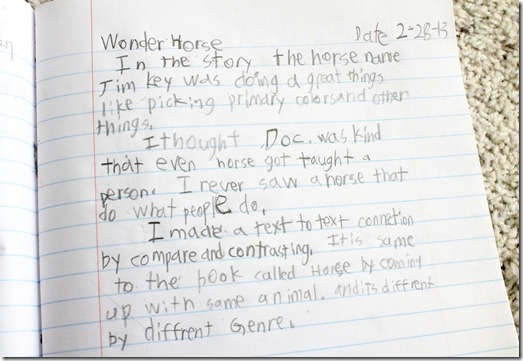 Wonder Horse Date 2-28-13
In the story the horse name
Jim key was doing a great things
like picking primary colorsand other
things.
I thought Doc. was kind
that even horse got taught a
person. I never saw a horse that
do what people do.
I made a text to text connction
by compare and contrasting. It is same
to the book called Horse by coming
up with same animal. and its diffrent
by diffrent Genre.